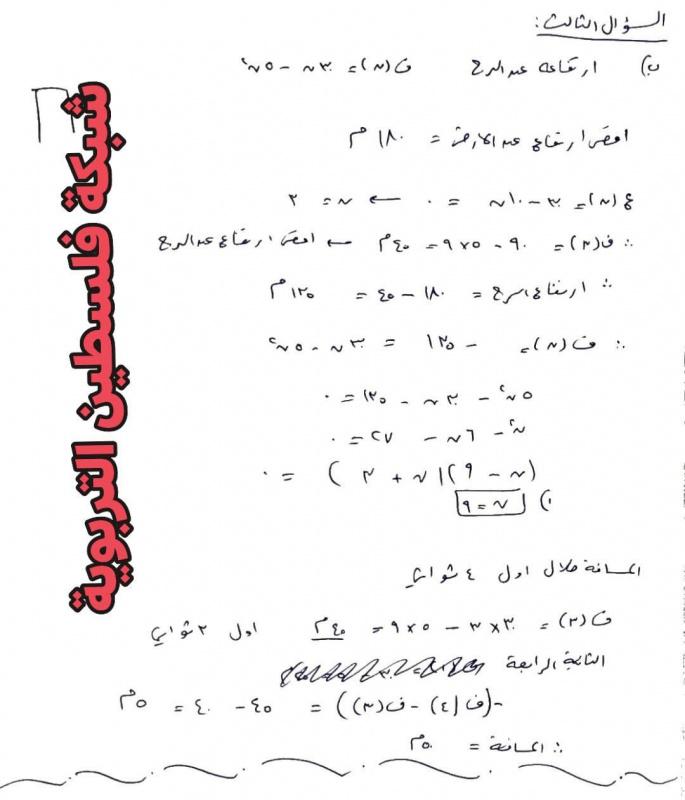 السؤال الثالث:
ب) ارتفاعه عن البرج ف(ن) = ٣٠ن - ٥ن²
اقصى ارتفاع عن الارض = ١٨٠ م
ع(ن) = ٣٠ - ١٠ن = ٠ ← ن = ٣
∴ ف(٣) = ٩٠ - ٥×٩ = ٤٥م ← اقصى ارتفاع عن البرج
∴ ارتفاع البرج = ١٨٠ - ٤٥ = ١٣٥م
∴ ف(ن) = - ١٣٥ = ٣٠ن - ٥ن²
٥ن² - ٣٠ن - ١٣٥ = ٠
ن² - ٦ن - ٢٧ = ٠
(ن - ٩)(ن + ٣) = ٠
١) ن = ٩
المسافة خلال اول ٤ ثواني
ف(٣) = ٣٠×٣ - ٥×٩ = ٤٥م اول ٣ ثواني
الثانية الرابعة
-(ف(٤) - ف(٣)) = ٤٥ - ٤٠ = ٥م
∴ المسافة = ٥٠م
شبكة فلسطين التربوية